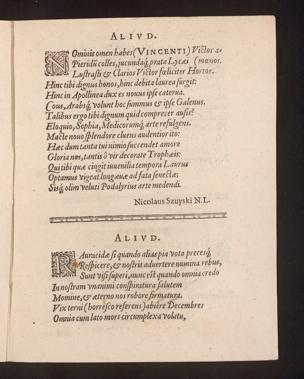 ALIVD.
NOminis omen habes (VINCENTI) Victor a-
Pieridũ colles, jucundaq́; prata Lycæi (mœnos.
Lustrasti & Clarios Victor fœliciter Hortos.
Hinc tibi dignus honos, hinc debita laurea surgit:
Hinc in Apollinea dux es novus ipse caterva.
Cous, Arabsq́; volunt hoc summus & ipse Galenus.
Talibus ergo tibi dignum quid comprecer ausis?
Eloquio, Sophia, Medicorumq́; arte refulgens.
Macte novo splendore cluens audentior ito:
Hæc dum tanta tui nimio succendet amore
Gloria nos, tantis ô vir decorate Trophæis:
Qui tibi quæ cingit iuvenilia tempora Laurus
Optamus vigeat longæuæ ad fata senectæ:
Sisq́; olim veluti Podalyrius arte medendi.
Nicolaus Szuyski N.L.
ALIVD.
RAuracidæ si quando alias pia vota precesq́;
Respicere, & nostris advertere numina rebus,
Sunt visi superi, nunc est quando omnia credo
In nostram vnanimi conspiratura salutem
Momine, & æterno nos robore firmatura.
Vix terni (horresco referens) abiêre Decembres
Omnia cum lato mors circumplexa volatu,